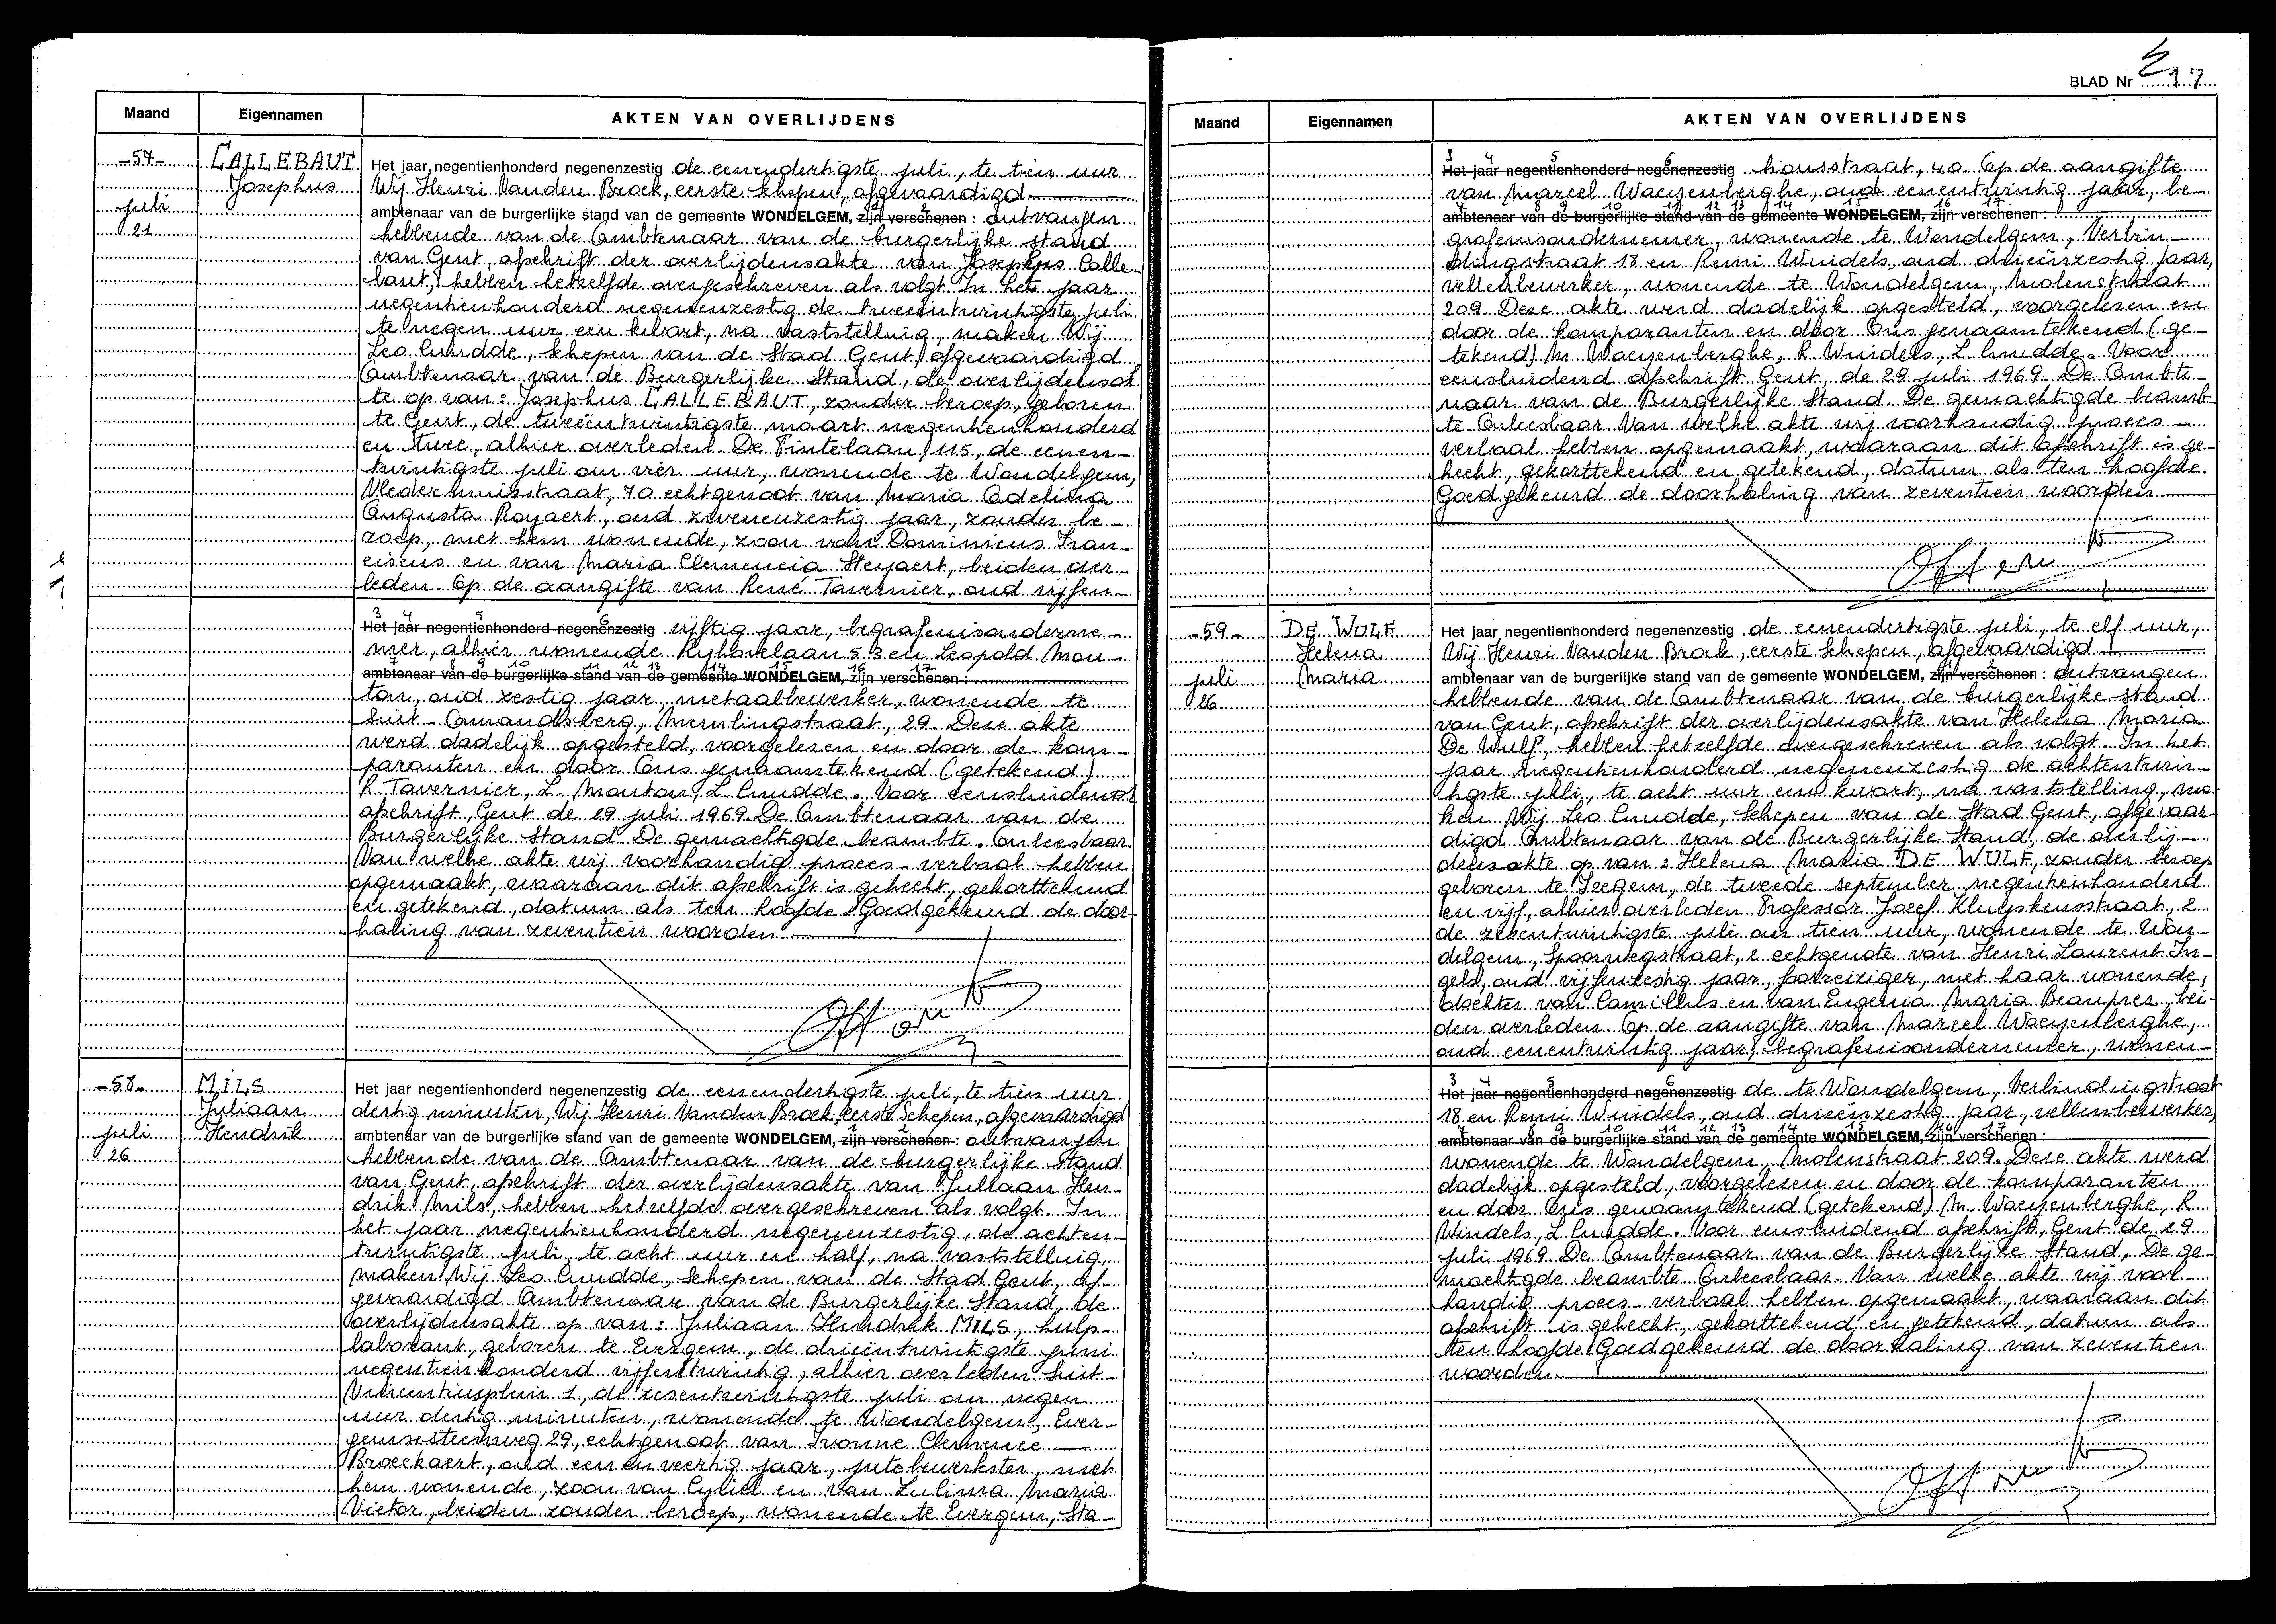 Maand Eigennamen AKTEN VAN OVERLIJDENS
-57- CALLEBAUT Het jaar negentienhonderd negenenzestig de eenendertigste juli, te tien uur
Josephus Wij Henri Vanden Broek, eerste schepen, afgevaardigd
juli ambtenaar van de burgerlijke stand van de gemeente WONDELGEM, zijn verschenen : ontvangen
21 hebbende van de Ambtenaar van de burgerlijke stand
van Gent, afschrift der overlijdensakte van Josephus Calle-
baut, hebben hetzelfde overgeschreven als volgt. In het jaar
negentienhonderd negenenzestig de tweeëntwintigste juli
te negen uur een kwart, na vaststelling, maken Wij
Leo Cnudde, Schepen van de Stad Gent, afgevaardigd
Ambtenaar van de Burgerlijke Stand, de overlijdensak
te op van : Josephus CALLEBAUT, zonder beroep, geboren
te Gent, de tweeëntwintigste maart negentienhonderd
en twee, alhier overleden De Pintelaan, 115, de eenen-
twintigste juli om vier uur, wonende te Wondelgem,
Vledermuisstraat, 70 echtgenoot van Maria Adelina
Augusta Royaert, oud zevenenzestig jaar, zonder be-
roep, met hem wonende, zoon van Dominicus Fran-
ciscus en van Maria Clemencia Steyaert, beiden over-
leden. Op de aangifte van René Tavernier, oud vijfen-
3 4 5 6
Het jaar negentienhonderd negenenzestig vijftig jaar, begrafenisonderne-
mer, alhier wonende Kyhovelaan 53 en Leopold Mou-
7 8 9 10 11 12 13 14 15 16 17
ambtenaar van de burgerlijke stand van de gemeente WONDELGEM, zijn verschenen :
ton, oud zestig jaar, metaalbewerker, wonende te
Sint-Amandsberg, Memlingstraat, 29. Deze akte
werd dadelijk opgesteld, voorgelezen en door de kom-
paranten en door Ons genaamtekend (getekend)
R. Tavernier, L. Mouton, L. Cnudde. Voor eensluidend
afschrift, Gent de 29 juli 1969. De Ambtenaar van de
Burgerlijke Stand De gemachtigde beambte. Onleesbaar
Van welke akte wij voorhandig proces-verbaal hebben
opgemaakt, waaraan dit afschrift is gehecht, gekorttekend
en getekend, datum als ten hoofde. Goedgekeurd de door-
haling van zeventien woorden.
-58- MILS Het jaar negentienhonderd negenenzestig de eenendertigste juli, te tien uur
Juliaan dertig minuten, Wij Henri Vanden Broek, eerste Schepen, afgevaardigd
juli Hendrik ambtenaar van de burgerlijke stand van de gemeente WONDELGEM, zijn verschenen : ontvangen
26 hebbende van de Ambtenaar van de burgerlijke Stand
van Gent, afschrift der overlijdensakte van Juliaan Hen-
drik Mils, hebben hetzelfde overgeschreven als volgt. In
het jaar negentienhonderd negenenzestig, de achten-
twintigste juli, te acht uur en half, na vaststelling,
maken Wij Leo Cnudde, Schepen van de Stad Gent, af-
gevaardigd Ambtenaar van de Burgerlijke Stand, de
overlijdensakte op van : Juliaan Hendrik MILS, hulp-
laborant, geboren te Evergem, de drieëntwintigste juni
negentienhonderd vijfentwintig, alhier overleden Sint-
Vincentiusplein 1, de zesentwintigste juli om negen
uur dertig minuten, wonende te Wondelgem, Ever-
gemsesteenweg 29, echtgenoot van Ivonne Clemence
Broeckaert, oud eenenveertig jaar, jutebewerkster, met
hem wonende, zoon van Cyliel en van Zulima Maria
Victor, beiden zonder beroep, wonende te Evergem, Sta-
BLAD Nr 17
Maand Eigennamen AKTEN VAN OVERLIJDENS
3 4 5 6
Het jaar negentienhonderd negenenzestig tionsstraat, 40. Op de aangifte
van Marcel Waeyenberghe, oud eenentwintig jaar, be-
7 8 9 10 11 12 13 14 15 16 17
ambtenaar van de burgerlijke stand van de gemeente WONDELGEM, zijn verschenen :
grafenisondernemer, wonende te Wondelgem, Verbin-
dingstraat 18 en Remi Windels, oud drieënzestig jaar,
vellenbewerker, wonende te Wondelgem, Molenstraat
209. Deze akte werd dadelijk opgesteld, voorgelezen en
door de komparanten en door Ons genaamtekend (ge-
tekend) M. Waeyenberghe, R. Windels, L. Cnudde. Voor
eensluidend afschrift Gent, de 29 juli 1969 De Ambte-
naar van de Burgerlijke Stand De gemachtigde beamb-
te Onleesbaar Van welke akte wij voorhandig proces-
verbaal hebben opgemaakt, waaraan dit afschrift is ge-
hecht, gekorttekend en getekend, datum als ten hoofde.
Goedgekeurd de doorhaling van zeventien woorden
-59- DE WULF Het jaar negentienhonderd negenenzestig de eenendertigste juli, te elf uur,
Helena Wij Henri Vanden Broek, eerste Schepen, afgevaardigd
juli Maria ambtenaar van de burgerlijke stand van de gemeente WONDELGEM, zijn verschenen : ontvangen
26 hebbende van de Ambtenaar van de burgerlijke stand
van Gent, afschrift der overlijdensakte van Helena Maria
De Wulf, hebben hetzelfde overgeschreven als volgt. In het
jaar negentienhonderd negenenzestig de achtentwin-
tigste juli, te acht uur een kwart, na vaststelling, ma-
ken Wij Leo Cnudde, Schepen van de Stad Gent, afgevaar-
digd Ambtenaar van de Burgerlijke Stand, de overlij-
densakte op van : Helena Maria DE WULF, zonder beroep
geboren te Izegem, de tweede september negentienhonderd
en vijf, alhier overleden Professor Jozef Kluyskensstraat, 2
de zesentwintigste juli om tien uur, wonende te Won-
delgem, Spoorwegstraat, 2 echtgenote van Henri Laurent In-
gels, oud vijfenzestig jaar, forreiziger, met haar wonende,
dochter van Camillus en van Eugenia Maria Beauprez, bei-
den overleden. Op de aangifte van Marcel Waeyenberghe,
oud eenentwintig jaar, begrafenisondernemer, wonen-
3 4 5 6
Het jaar negentienhonderd negenenzestig de te Wondelgem, Verbindingstraat
18 en Remi Windels, oud drieënzestig jaar, vellenbewerker,
7 8 9 10 11 12 13 14 15 16 17
ambtenaar van de burgerlijke stand van de gemeente WONDELGEM, zijn verschenen :
wonende te Wondelgem, Molenstraat 209. Deze akte werd
dadelijk opgesteld, voorgelezen en door de komparanten
en door Ons genaamtekend (getekend) M. Waeyenberghe, R.
Windels, L. Cnudde. Voor eensluidend afschrift, Gent de 29
juli 1969 De Ambtenaar van de Burgerlijke Stand, De ge-
machtigde beambte Onleesbaar Van welke akte wij voor-
handig proces-verbaal hebben opgemaakt, waaraan dit
afschrift is gehecht, gekorttekend en getekend, datum als
ten hoofde Goedgekeurd de doorhaling van zeventien
woorden.